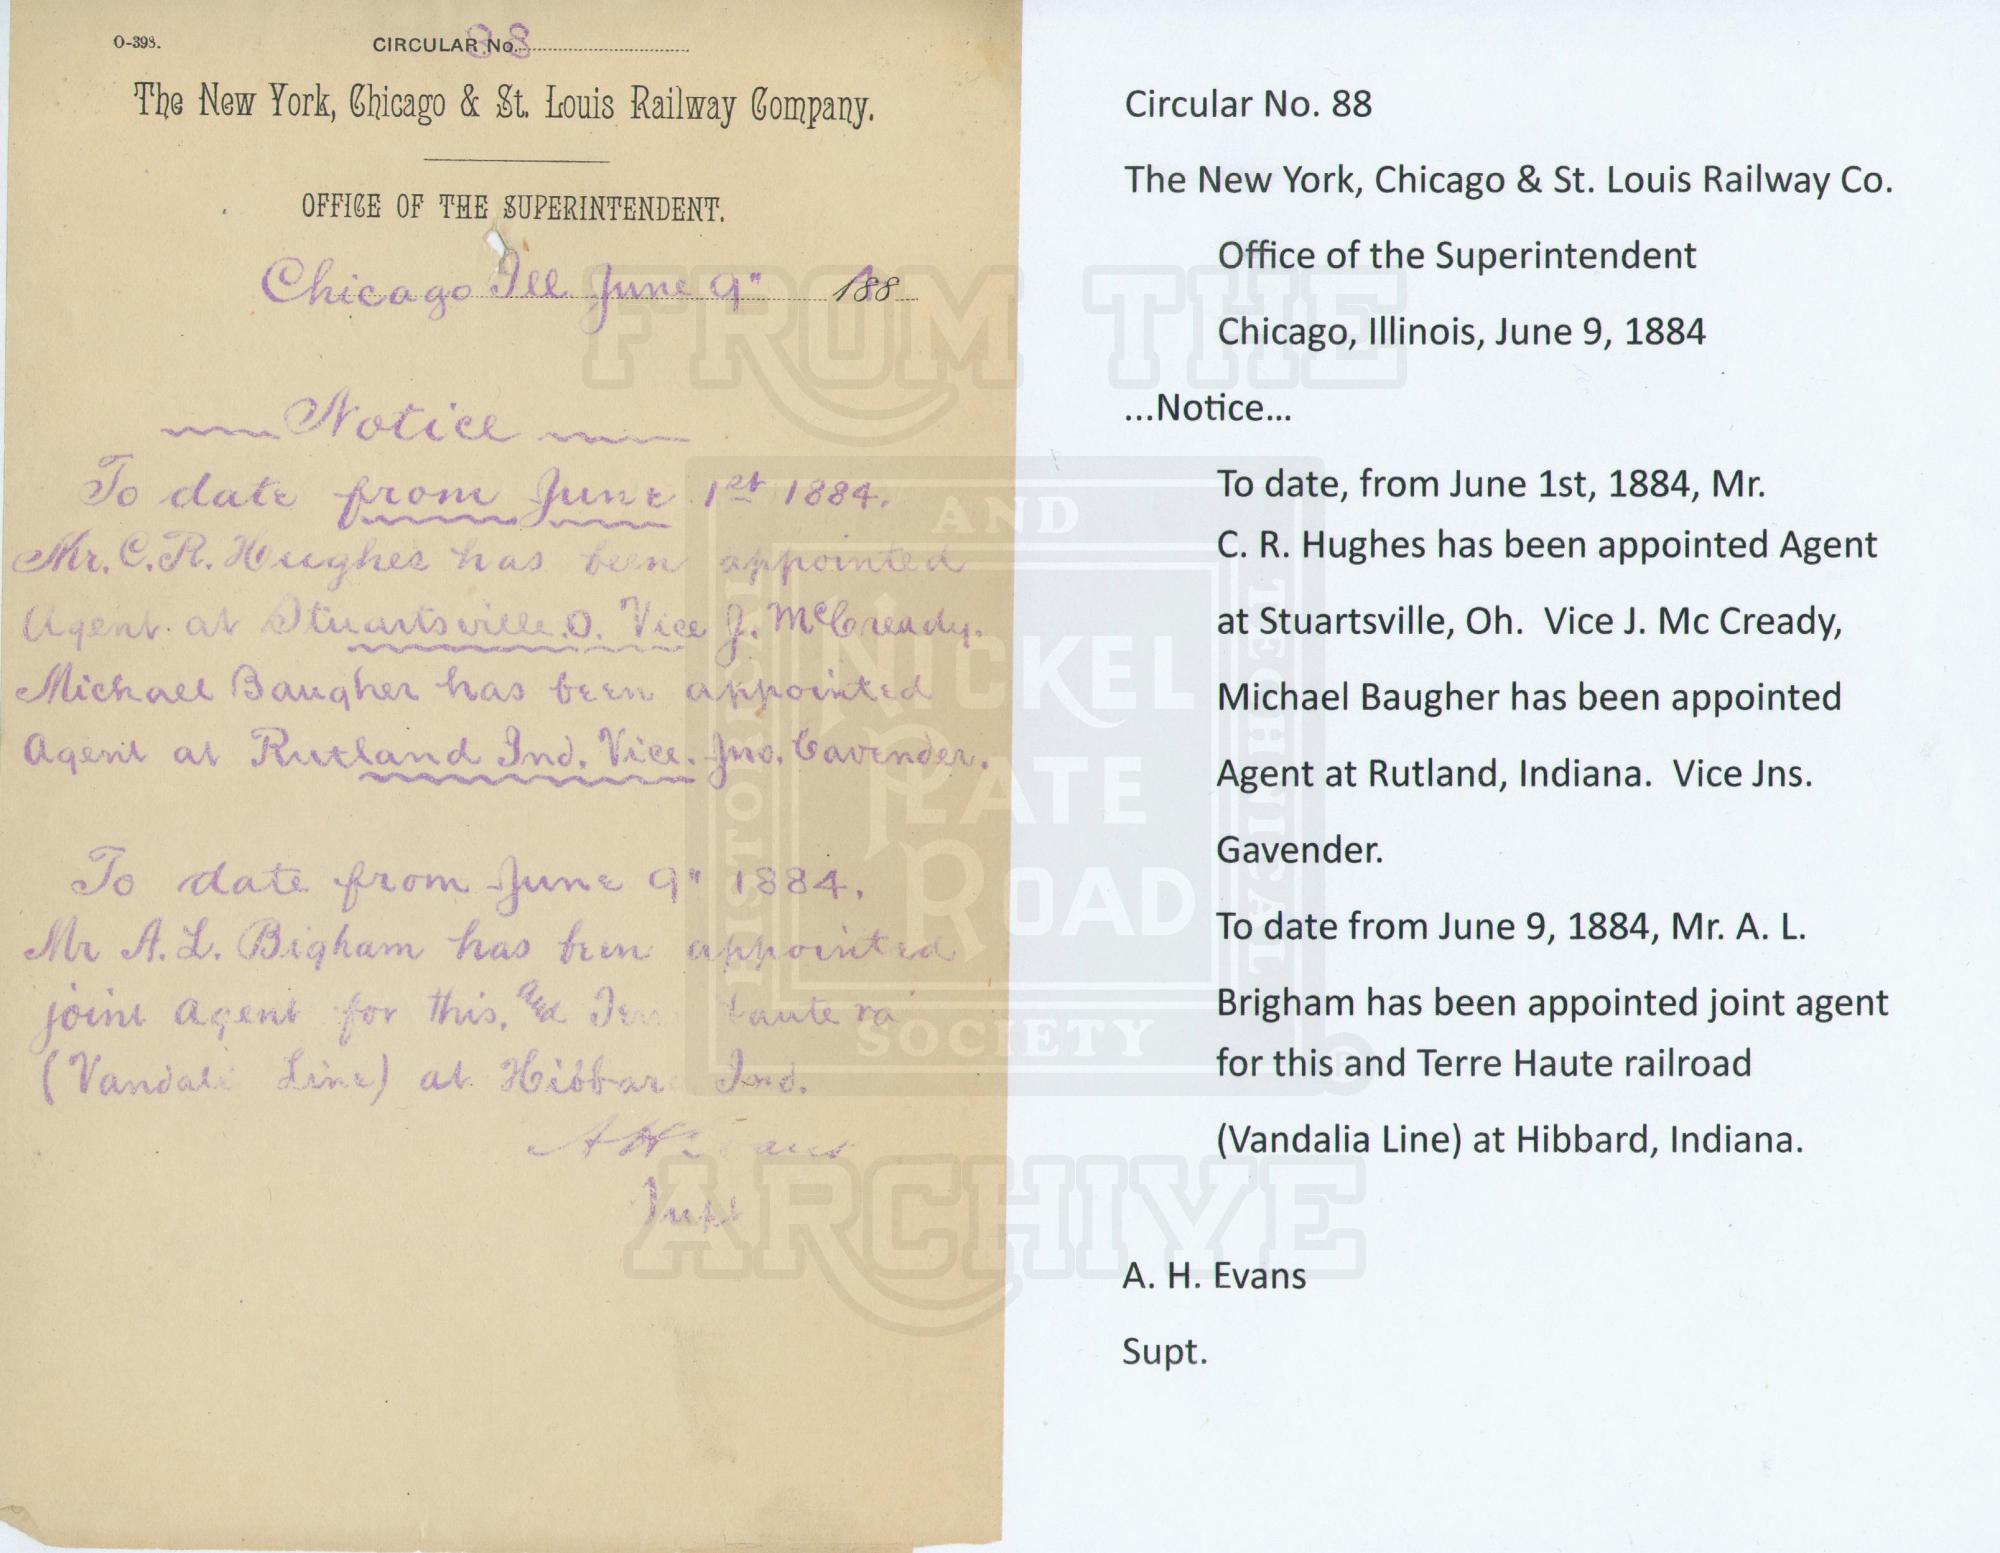 O-398.
CIRCULAR No. 88
The New York, Chicago & St. Louis Railway Company.
OFFICE OF THE SUPERINTENDENT.
Chicago Ill. June 9" 188
Notice
To date from June 1st 1884.
Mr. C. R. Hughes has been appointed
Agent at Stuartsville. O. Vice J. McCready.
Michael Baugher has been appointed
Agent at Rutland Ind. Vice. Jno. Cavender.
To date from June 9" 1884.
Mr A. L. Bigham has been appointed
joint agent for this, and
(Vandali Line) at Hibbard Ind.
A H Evans
Supt
Circular No. 88
The New York, Chicago & St. Louis Railway Co.
Office of the Superintendent
Chicago, Illinois, June 9, 1884
...Notice...
To date, from June 1st, 1884, Mr.
C. R. Hughes has been appointed Agent
at Stuartsville, Oh. Vice J. Mc Cready,
Michael Baugher has been appointed
Agent at Rutland, Indiana. Vice Jns.
Gavender.
To date from June 9, 1884, Mr. A. L.
Brigham has been appointed joint agent
for this and Terre Haute railroad
(Vandalia Line) at Hibbard, Indiana.
A. H. Evans
Supt.
FROM THE
NICKEL
PLATE
ROAD
HISTORICAL
AND
TECHNICAL
SOCIETY
®
ARCHIVE